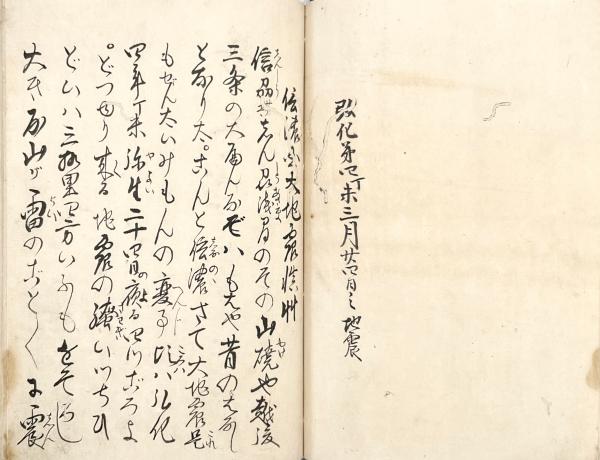 弘化第四丁未三月廿四日之地震
信濃国大地震
信州浅間のその山焼や越後
三条の大なぞハもはや昔のはなし
となり太。こんど信濃さて大地震是
もぜんたいみもんの変事比ハ弘化
四年丁未弥生二十四日の夜る四ツごろよ
どつさり来る地震の騒いつちひ
どひハ三拾里四方いふもをそろし
大きな山が雷のごとくニ震